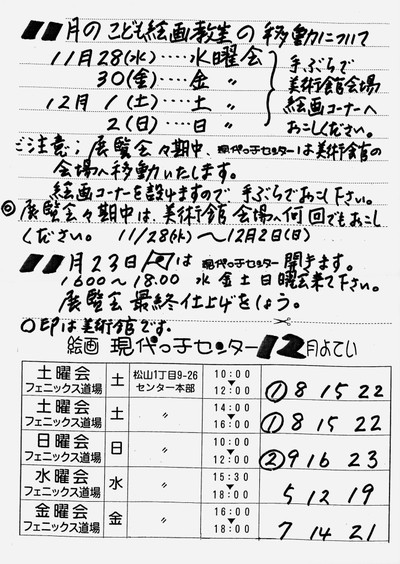 11月のこども絵画教室の移動について
11月28(水)‥‥水曜会
30(金)‥‥金 〃
12月 1(土)‥‥土 〃
2(日)‥‥日 〃
手ぶらで
美術館会場
絵画コーナーへ
おこしください。
ご注意；展覧会々期中、現代っ子センターは美術館の
会場へ移動いたします。
絵画コーナーを設けますので手ぶらでお越し下さい。
◎展覧会々期中は、美術館会場へ何回でもおこし
ください。 11/28(水)〜12月2日(日)
11月23日 は 現代っ子センター開きます。
16:00〜18:00 水金土日曜会来て下さい。
展覧会最終仕上げをしよう。
○EPは美術館です。
絵画 現代っ子センター12月よてい
土曜会 フェニックス道場 土 松山1丁目9-26 センター本部 10:00▼12:00 ① 8 15 22
土曜会 フェニックス道場 土 〃 14:00▼16:00 ① 8 15 22
日曜会 フェニックス道場 日 〃 10:00▼12:00 ② 9 16 23
水曜会 フェニックス道場 水 〃 15:30▼18:00 5 12 19
金曜会 フェニックス道場 金 〃 16:00▼18:00 7 14 21